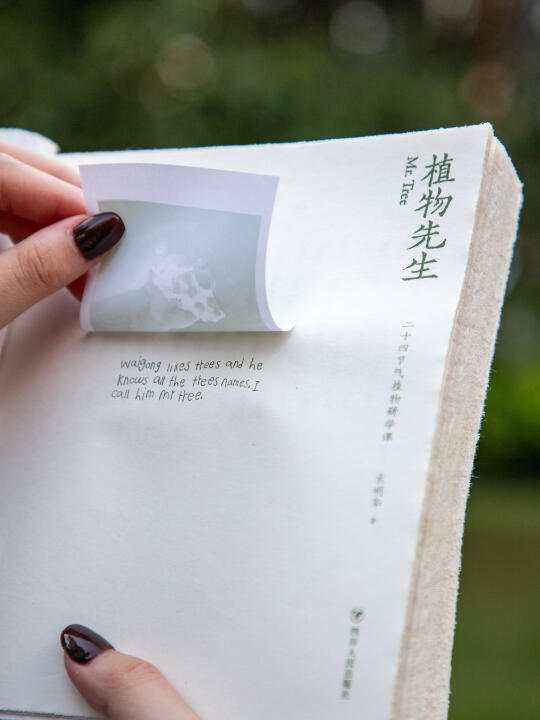 植物先生
Mr. Tree
二十四节气植物研学课
明华 著
四川人民出版社
waigong likes trees and he
knows all the trees names. I
call him mr tree.